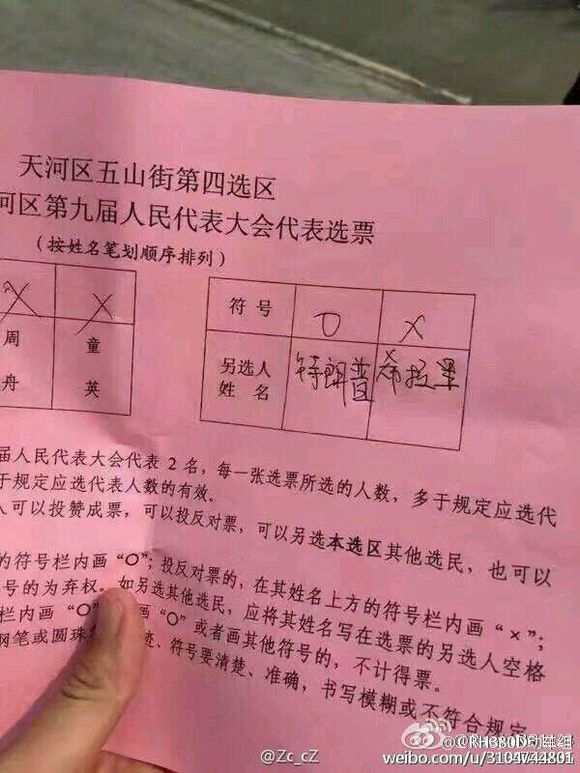 天河区五山街第四选区
河区第九届人民代表大会代表选票
(按姓名笔划顺序排列)
X X
周舟 童英
符号 O X
另选人姓名 特朗普 希拉里
届人民代表大会代表 2 名，每一张选票所选的人数，多于规定应选代
于规定应选代表人数的有效。
人可以投赞成票，可以投反对票，可以另选本选区其他选民，也可以
的符号栏内画“O”；投反对票的，在其姓名上方的符号栏内画“×”；
号的为弃权。如另选其他选民，应将其姓名写在选票的另选人空格
栏内画“O” 画“O”或者画其他符号的，不计得票。
钢笔或圆珠 迹、符号要清楚、准确，书写模糊或不符合规定
@Zc_cZ
weibo.com/u/3104744801